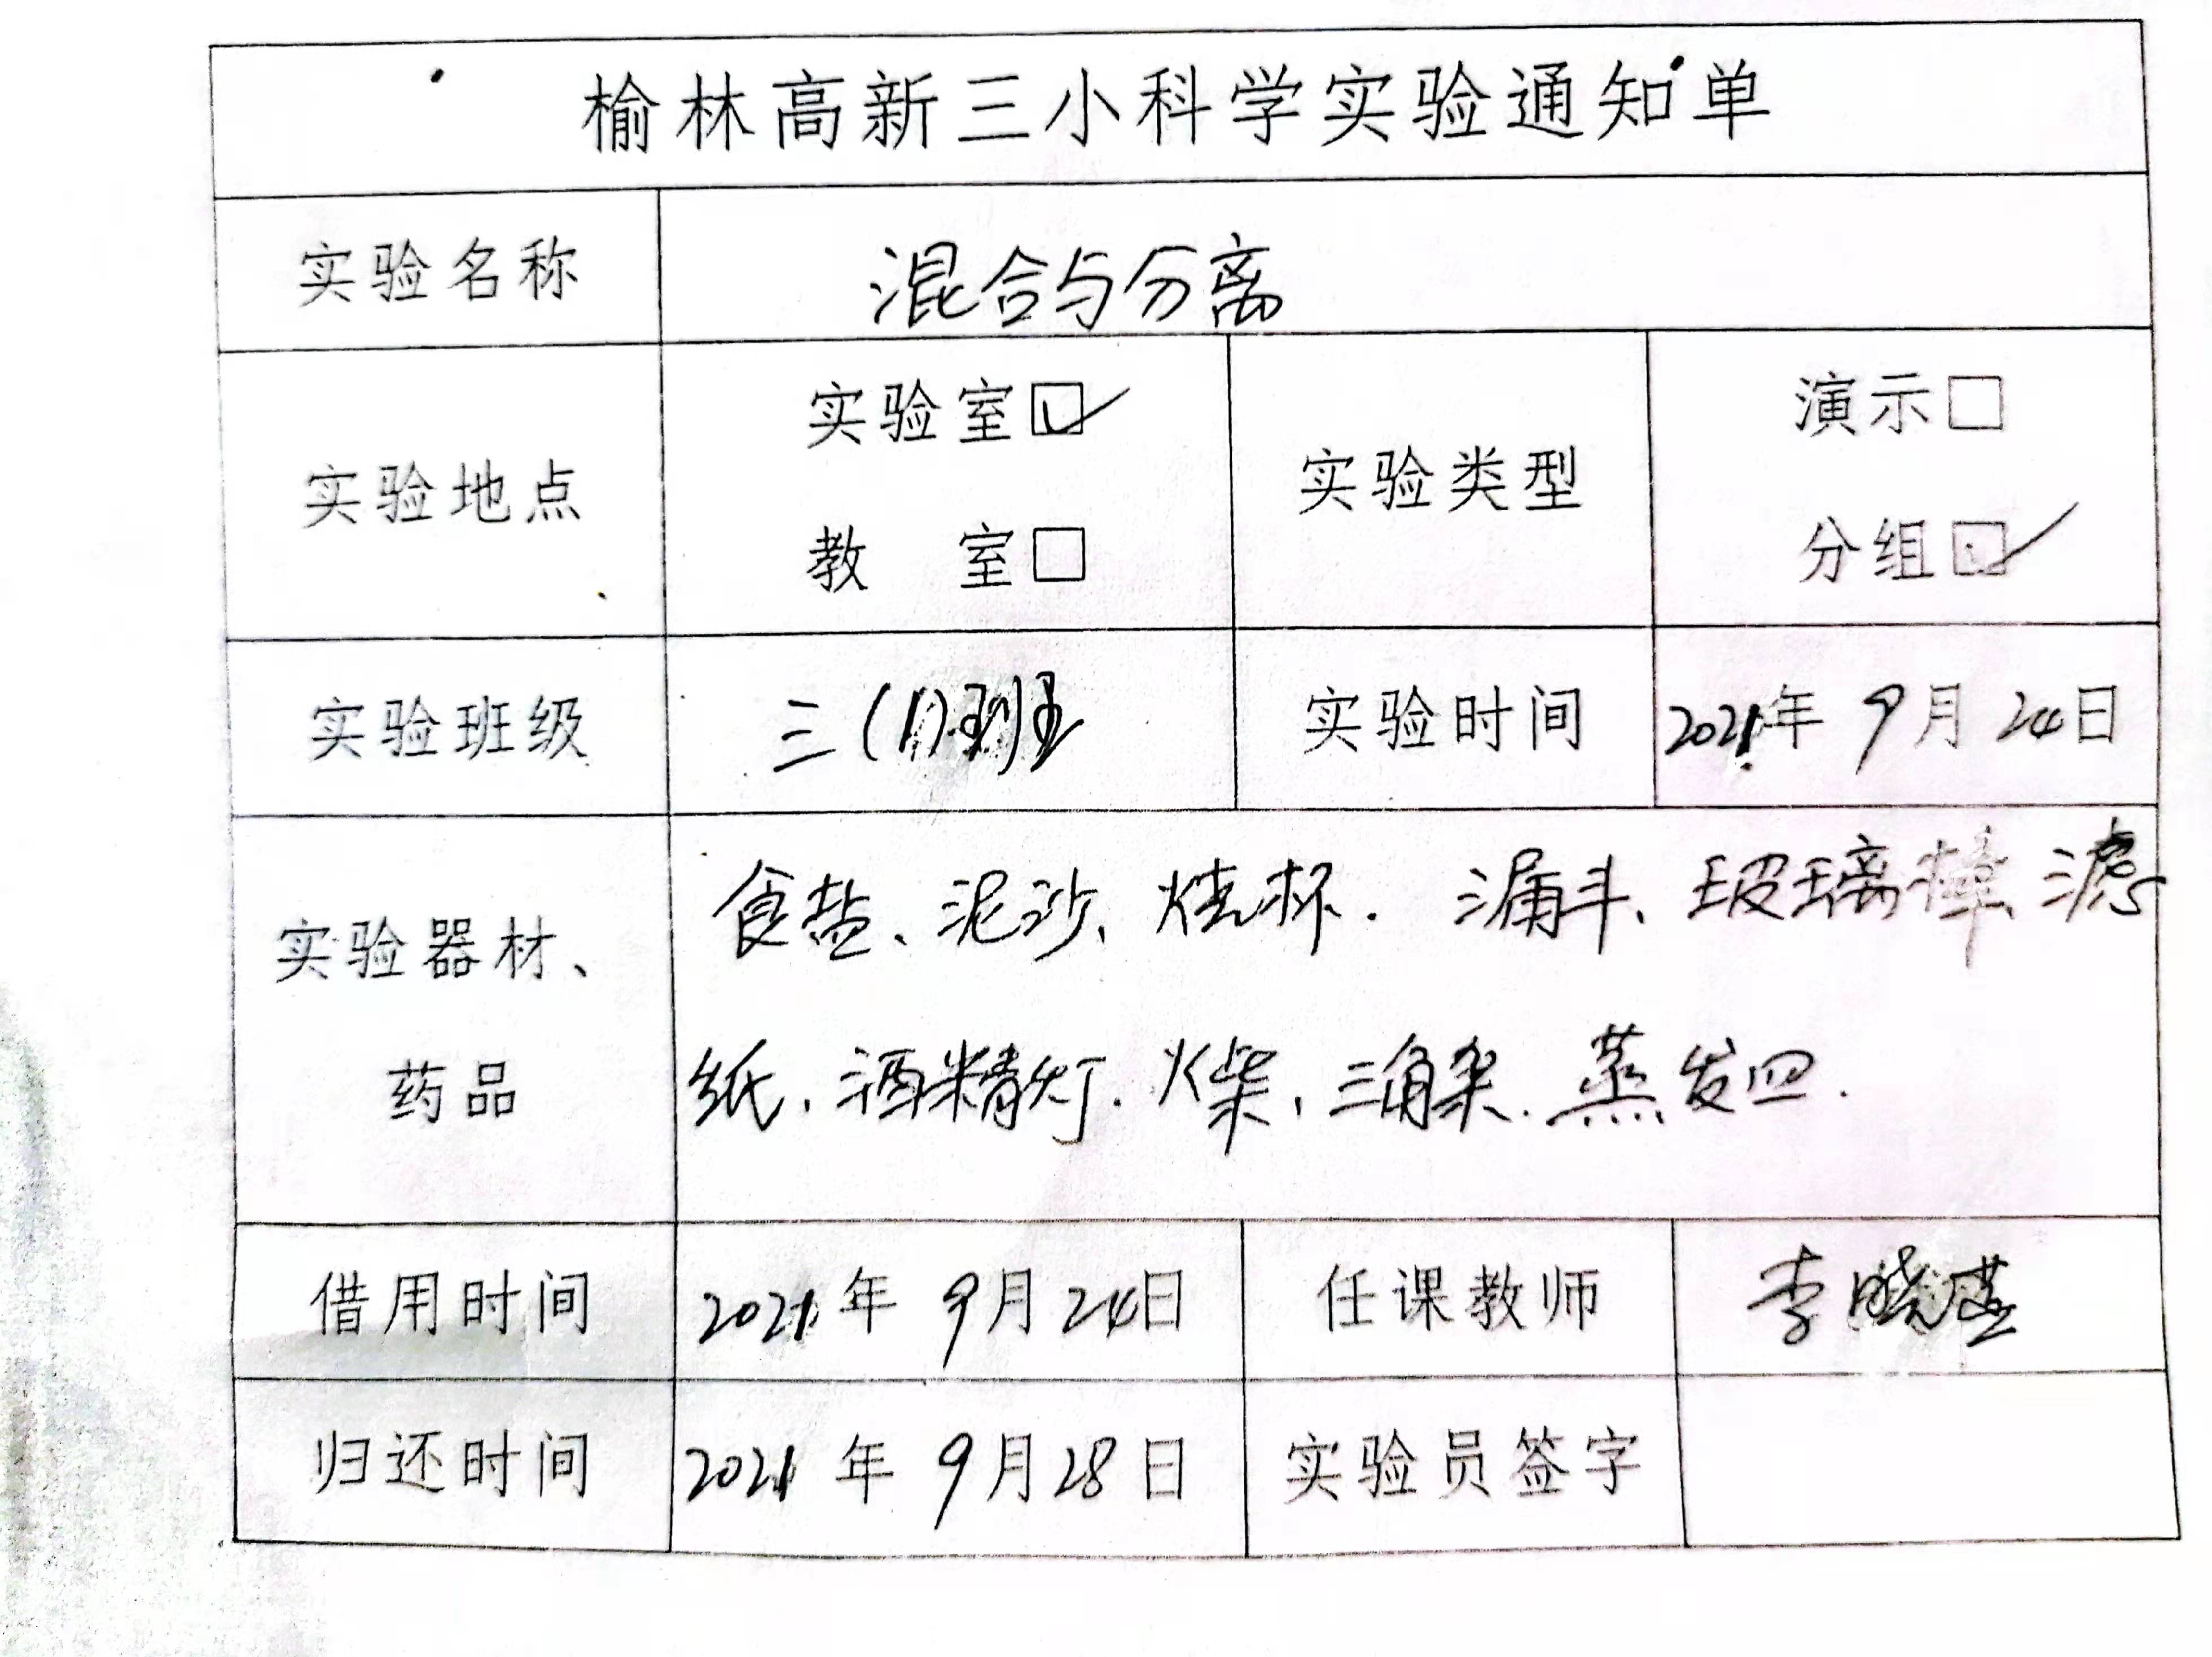 榆林高新三小科学实验通知单
实验名称 混合与分离
实验地点 实验室☑ 教 室□ 实验类型 演示□ 分组☑
实验班级 三(1)班 实验时间 2021年 9月 24日
实验器材、药品 食盐、泥沙、烧杯. 漏斗、玻璃棒、滤
纸、酒精灯. 火柴、三角架. 蒸发皿.
借用时间 2021年 9月24日 任课教师 李晓燕
归还时间 2021年 9月28日 实验员签字